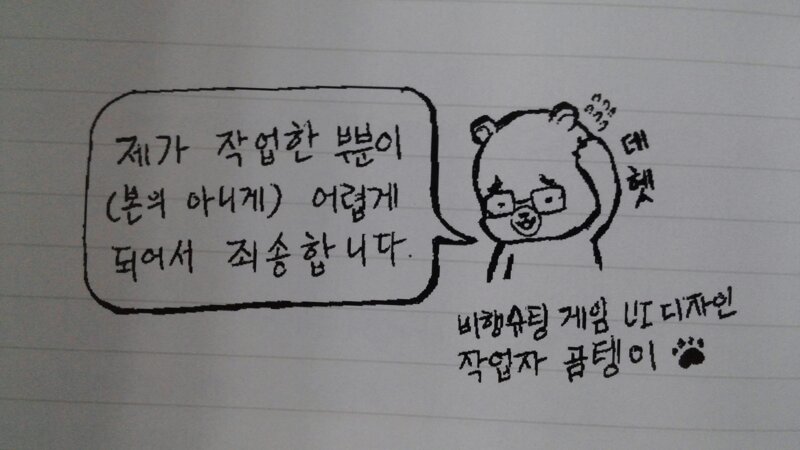 제가 작업한 부분이
(본의 아니게) 어렵게
되어서 죄송합니다.
데헷
비행슈팅 게임 UI 디자인
작업자 곰텡이